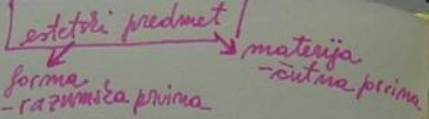 estetski predmet
forma
- razumska prvina
materija
- čutna prvina